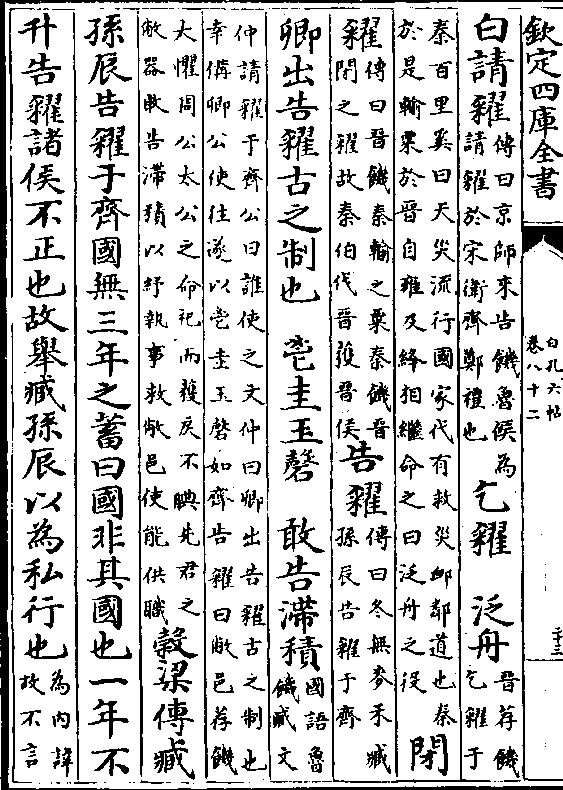 欽定四庫全書
白孔六帖
卷八十二
二十三
白請糴
傳曰京師來告饑魯侯為
請糴於宋衛齊鄭禮也
乞糴 泛舟
晉荐饑
乞糴于
秦百里奚曰天災流行國家代有救災卹鄰道也秦
於是輸粟於晉自雍及絳相繼命之曰泛舟之役
閉
糴
傳曰晉饑秦輸之粟秦饑晉
閉之糴故秦伯伐晉獲晉侯
告糴
傳曰冬無麥禾臧
孫辰告糴于齊
卿出告糴古之制也 鬯圭玉磬 敢告滯積
國語魯
饑臧文
仲請糴于齊公曰誰使之文仲曰卿出告糴古之制也
幸備卿公使往遂以鬯圭玉磬如齊告糴曰敝邑荐饑
大懼周公太公之命祀而獲戾不腆先君之
敝器敢告滯積以紓執事救敝邑使能供職
穀梁傳臧
孫辰告糴于齊國無三年之蓄曰國非其國也一年不
升告糴諸侯不正也故舉臧孫辰以為私行也
為内諱
故不言